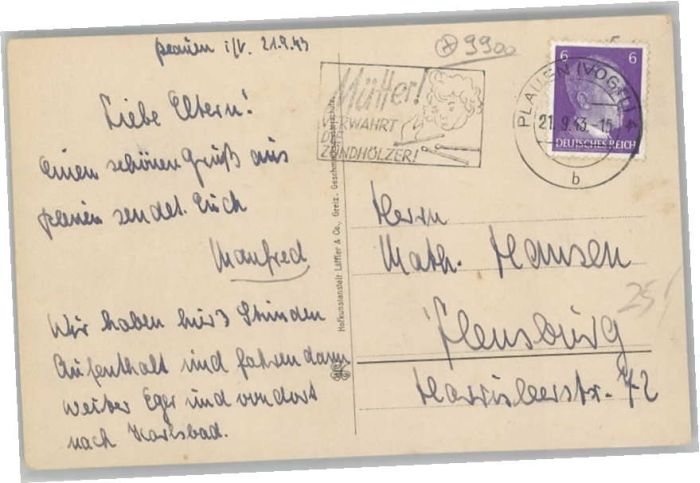 Plauen i/V. 21.9.43
9900
Liebe Eltern!
Einen schönen Gruß aus
Plauen sendet Euch
Manfred
Wir haben hier 3 Stunden
Aufenthalt und fahren dann
weiter Eger und von dort
nach Karlsbad.
Mütter!
VERWAHRT
DIE
ZÜNDHÖLZER!
PLAUEN (VOGTL) 4
21.9.43.-15
b
6 6
DEUTSCHES REICH
Hofkunstanstalt Löffler & Co., Greiz.
Herrn
Math. Hansen
Flensburg
Harrisleerstr. 72
25